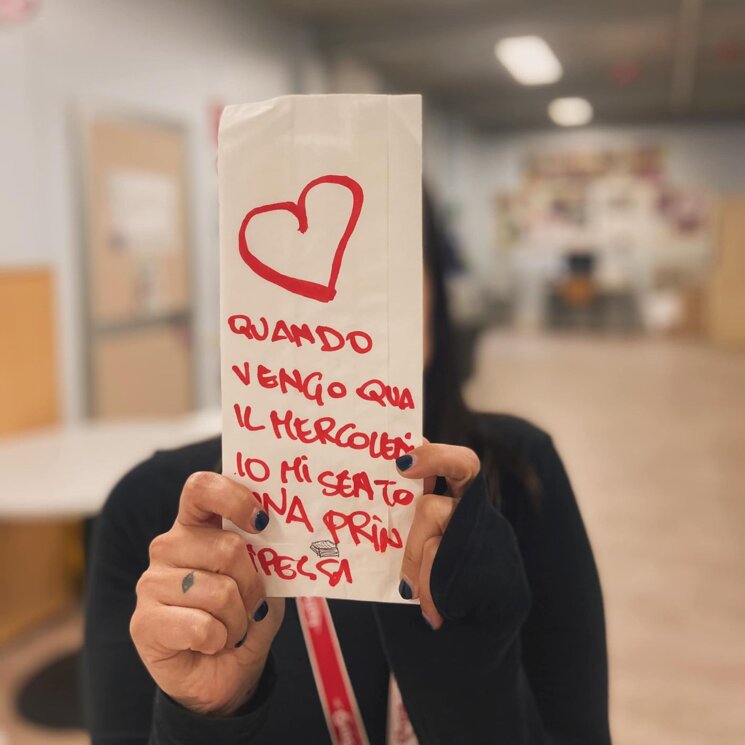 QUANDO
VENGO QUA
IL MERCOLEDÌ
IO MI SENTO
UNA PRIN
IPESSA